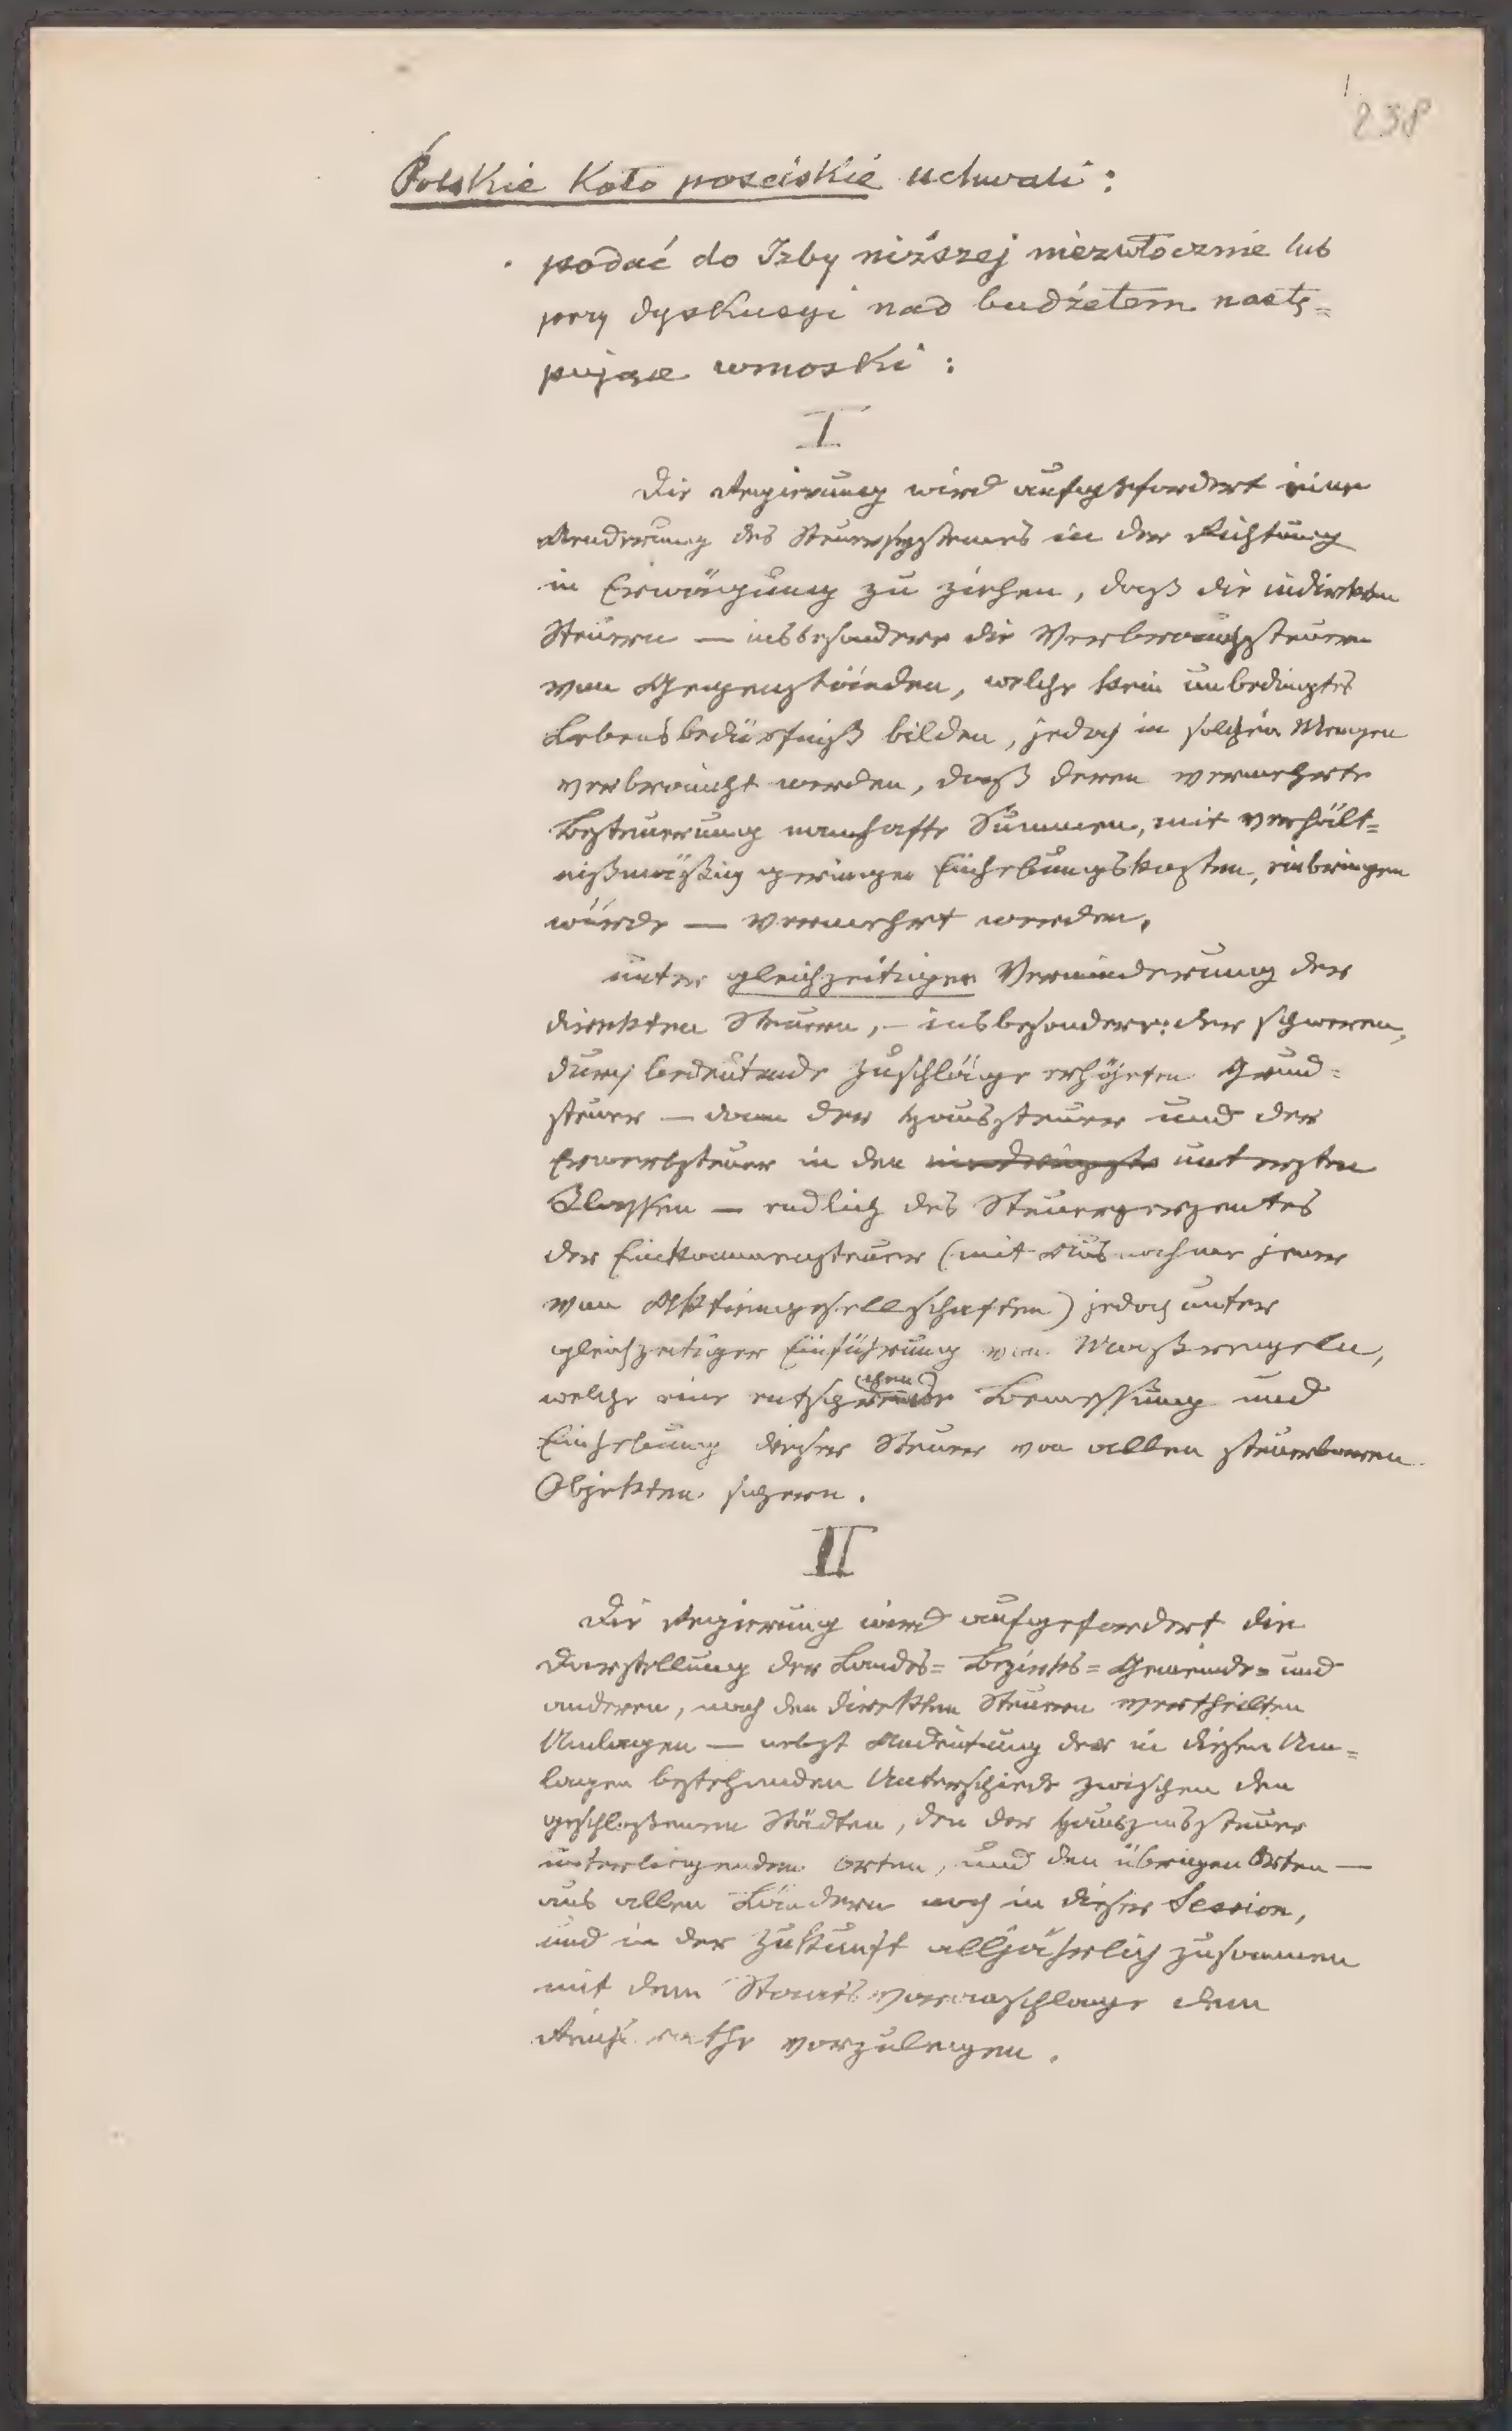 238
Polskie Koło poselskie uchwali:
podać do Izby niższej niezwłocznie lub
przy dyskusyi nad budżetem nastę=
pujące wnioski:
I
Die Regierung wird aufgefordert eine
Aenderung des Steuersystemes in der Richtung
in Erwägung zu ziehen, daß die indirekten
Steuern — insbesondere die Verbrauchssteuern
von Gegenständen, welche kein unbedingtes
Lebensbedürfniß bilden, jedoch in solchen Mengen
verbraucht werden, daß deren vermehrte
Besteuerung namhafte Summen, mit verhält=
nißmäßig geringen Einhebungskosten, einbringen
würde — vermehrt werden,
unter gleichzeitiger Verminderung der
direkten Steuern, — insbesondere: der schweren,
durch bedeutende Zuschläge erhöhten Grund=
steuer — dann der Haussteuer und der
Erwerbsteuer in den untersten
Klassen — endlich des Steuerperzentes
der Einkommensteuer (mit Ausnahme jener
von Aktiengesellschaften) jedoch unter
gleichzeitiger Einführung von Maßregeln,
welche eine entsprechende Bemessung und
Einhebung dieser Steuer von allen steuerbaren
Objekten sichern.
II
Die Regierung wird aufgefordert die
Darstellung der Landes= Bezirks= Gemeinde= und
anderen, nach den direkten Steuern vertheilten
Umlagen — nebst Andeutung der in diesen Um=
lagen bestehenden Unterschiede zwischen den
geschloßenen Städten, den der Hauszinssteuer
unterliegenden Orten, und den übrigen Orten —
aus allen Ländern noch in dieser Session,
und in der Zukunft alljährlich zusammen
mit dem Staatsvoranschlage dem
Reichsrathe vorzulegen.